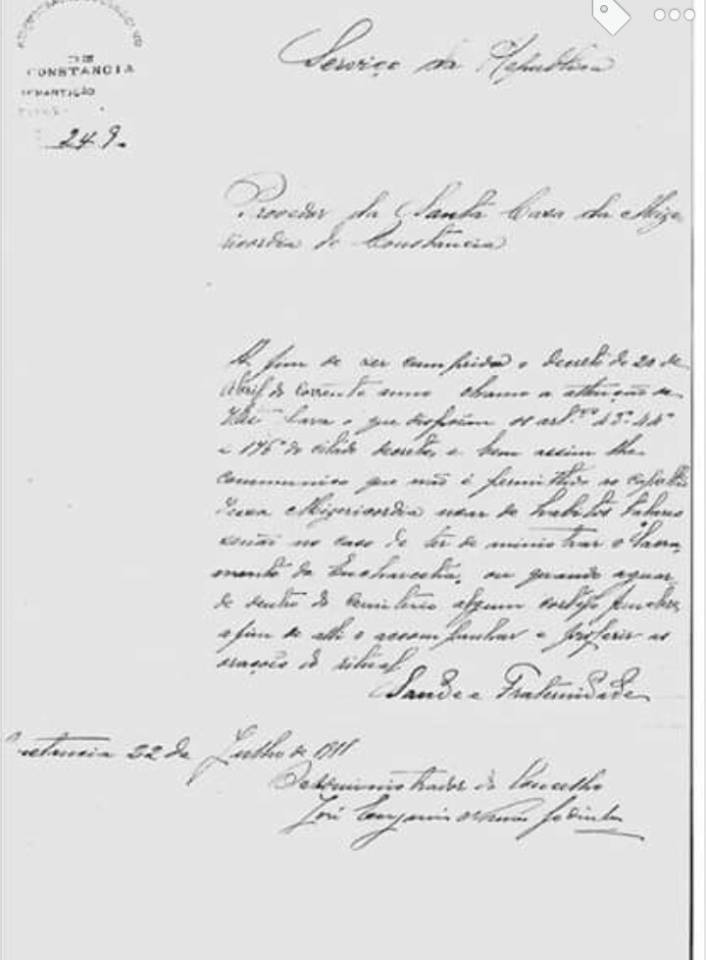 DE
CONSTANCIA
REPARTIÇÃO
249.
Serviço da Republica
Provedor da Santa Casa da Mize-
ricordia de Constancia
A fim de ser cumprido o decreto de 20 de
Abril do corrente anno chamo a attenção de
o que dispõem os artos 43º 44º
e 176º do citado decreto, e bem assim lhe
communico que não é permittido ao capellão
Mizericordia usar de habitos talares
senão no caso de ter de ministrar o Sacra-
mento da Eucharestia, ou quando aguar-
de dentro do cemiterio algum cortejo funebre,
a fim de alli o acompanhar e proferir as
orações do ritual
Saude e Fraternidade
Constancia 22 de Julho de 1911
O Administrador do Concelho
José